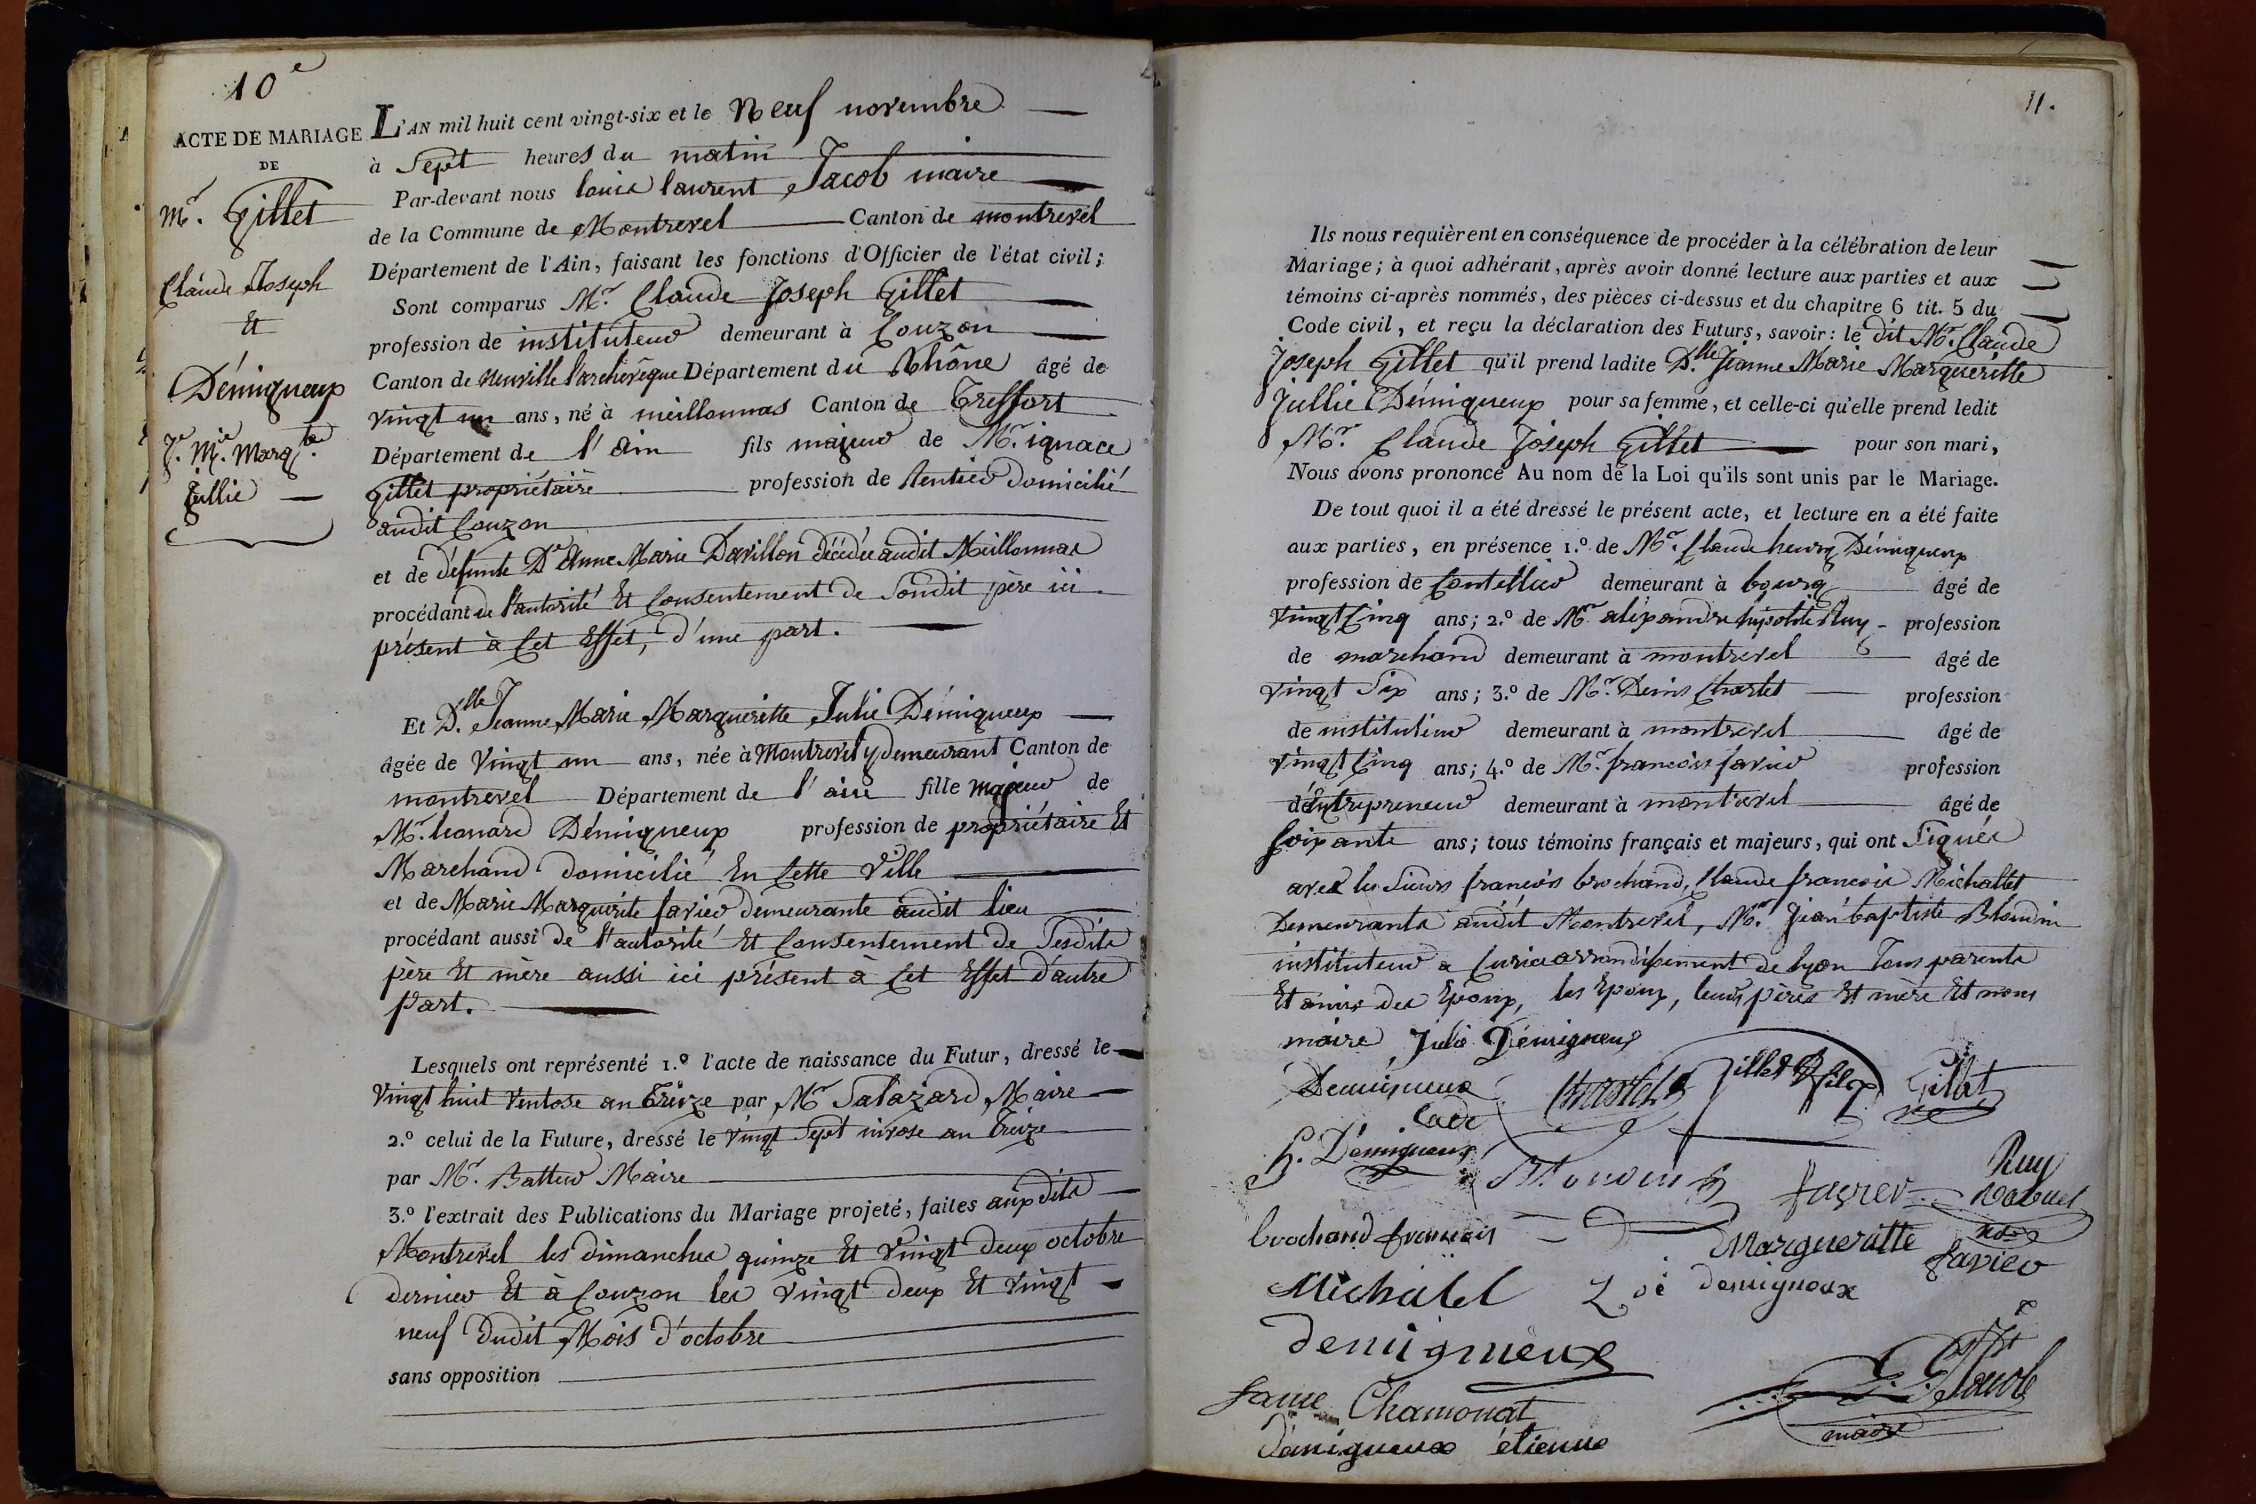 10e
ACTE DE MARIAGE
DE
Mr. Gillet
Claude Joseph
Et
Démiqueux
Je. Mie. Margte.
Jullie
L'AN mil huit cent vingt-six et le Neuf novembre
à Sept heures du matin
Par-devant nous louis laurent Jacob maire
de la Commune de Montrevel Canton de montrevel
Département de l'Ain, faisant les fonctions d'Officier de l'état civil;
Sont comparus Mr. Claude Joseph Gillet
profession de instituteur demeurant à Couzon
Canton de Neuville l'archevêque Département du Rhône âgé de
vingt un ans, né à meillonnas Canton de Treffort
Département de l'Ain fils majeur de Mr. ignace
Gillet propriétaire profession de Rentier domicilié
audit Couzon
et de défunte De Anne Marie Davillon décédée audit Meillonnas
procédant de l'autorité Et Consentement de Sondit père ici
présent à Cet Effet, d'une part.
Et Dlle. Jeanne Marie Margueritte Julie Démiqueux
âgée de vingt un ans, née à Montrevel y demeurant Canton de
montrevel Département de l'ain fille majeur de
Mr. leonard Démiqueux profession de propriétaire Et
Marchand domicilié En Cette Ville
et de Marie Marguerite favier demeurante audit lieu
procédant aussi de l'autorité Et Consentement de Sesdits
père Et mère aussi ici présent à Cet Effet d'autre
part.
Lesquels ont représenté 1.º l'acte de naissance du Futur, dressé le
vingt huit Ventose an Treize par Mr Salazard Maire
2.º celui de la Future, dressé le vingt Sept nivose an Treize
par Mr. Batteur Maire
3.º l'extrait des Publications du Mariage projeté, faites auxdits
Montrevel les dimanches quinze Et Vingt deux octobre
dernier Et à Couzon les vingt deux Et vingt
neuf dudit Mois d'octobre
sans opposition
11.
Ils nous requièrent en conséquence de procéder à la célébration de leur
Mariage; à quoi adhérant, après avoir donné lecture aux parties et aux
témoins ci-après nommés, des pièces ci-dessus et du chapitre 6 tit. 5 du
Code civil, et reçu la déclaration des Futurs, savoir: le dit Mr. Claude
Joseph Gillet qu'il prend ladite Dlle. Jeanne Marie Marguéritte
Jullie Démiqueux pour sa femme, et celle-ci qu'elle prend ledit
Mr. Claude Joseph Gillet pour son mari,
Nous avons prononcé Au nom de la Loi qu'ils sont unis par le Mariage.
De tout quoi il a été dressé le présent acte, et lecture en a été faite
aux parties, en présence 1.º de Mr. Claude henry Démiqueux
profession de Contellier demeurant à bourg âgé de
vingt Cinq ans; 2.º de Mr. alexandre hipolite Ruy profession
de marchand demeurant à montrevel âgé de
vingt Six ans; 3.º de Mr. Denis Charlet profession
de instituteur demeurant à montrevel âgé de
vingt Cinq ans; 4.º de Mr. francois favier profession
d'Entrepreneur demeurant à montrevel âgé de
Soixante ans; tous témoins français et majeurs, qui ont Signés
avec les Sieurs francois brochand, Claude francois Michallet
Demeurants audit Montrevel, Mr. Jean baptiste Blondin
instituteur a Curis arrondissement de lyon Tous parents
Et amis des Epoux, les Epoux, leurs pères Et mère Et nous
maire Julie Démigneux
Demiqueux
Cadet
Charlet
Gillet fils
Gillet
h. Démiqueux
Blondin
favier
Ruy
brochand francois
Margueritte
favier
Michalet
Zoé demigneux
demigneux
Chamonat
L. L. Jacob
maire
Démiqueux étienne